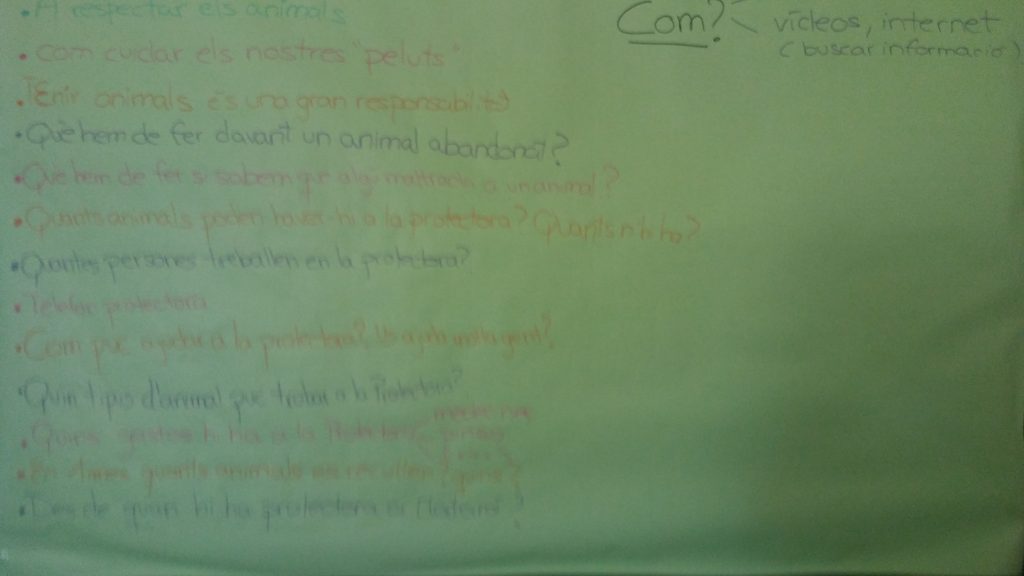 • A respectar els animals
• com cuidar els nostres "peluts"
• Tenir animals és una gran responsabilitat
• Què hem de fer davant un animal abandonat?
• Què hem de fer si sabem que algú maltracta a un animal?
• Quants animals poden haver-hi a la protectora? Quants n'hi ha?
• Quantes persones treballen en la protectora?
• Telèfon protectora
• Com puc ajudar a la protectora? Us ajuda molta gent?
• Quin tipus d'animal que trobem a la Protectora?
• hi ha a la
• quants animals
• Des de quan hi ha protectora a
Com?
vídeos, internet
(buscar informació)